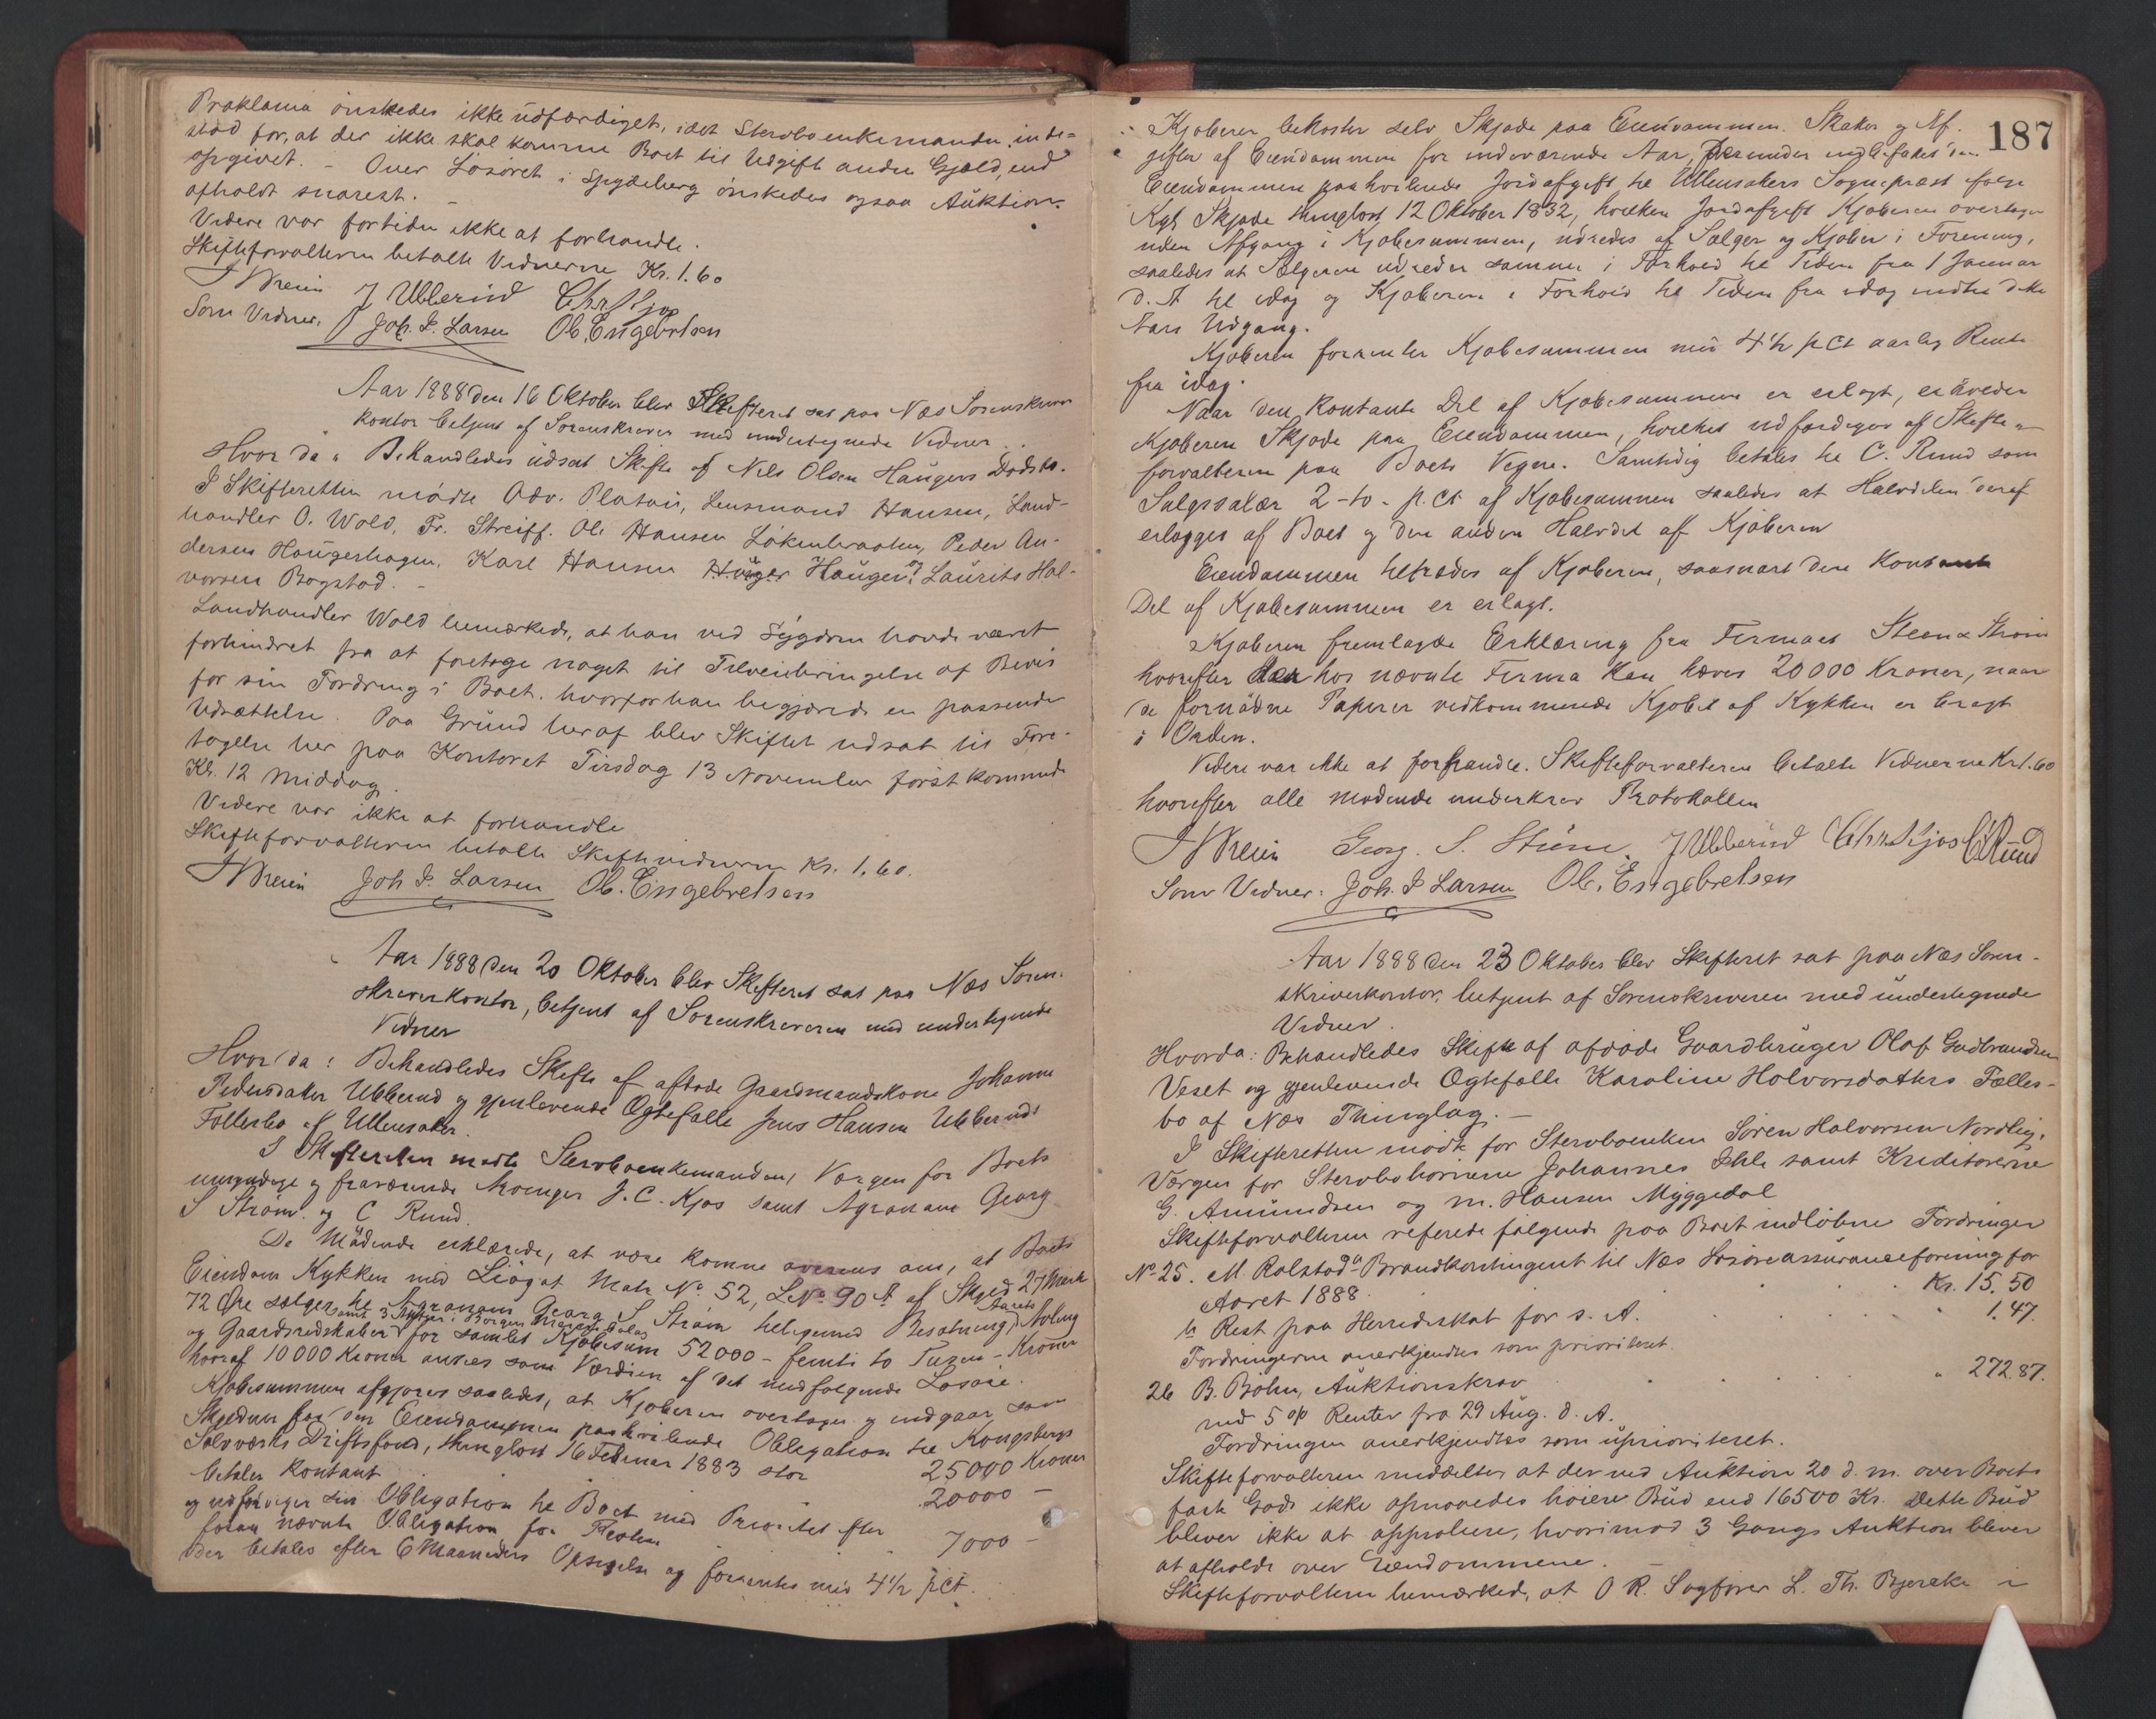 Proklama önskedes ikke udfærdiget, idet Sterboenkemanden inde-
stod for, at der ikke skal komme Boet til Udgift anden Gjæld, end
opgivet. - Over Lösöret i Spydeberg önskedes ogsaa Auktion
afholdt snarest. -
Videre var fortiden ikke at forhandle.
Skifteforvalteren betalte Vidnerne Kr. 1.60
J Ubberud Chr Kjos
Som Vidner: Joh. P. Larsen Ol. Engebretsen
Aar 1888 den 16 Oktober blev Skifteret sat paa Næs Sorenskriver
kontor betjent af Sorenskriveren med undertegnede Vidner.
Hvor da: Behandledes udsat Skifte af Nils Olsen Haugers Dødsbo.
I Skifteretten mödte Adv. Platou, Lensmand Hansen, Land-
handler O. Wold, Fr. Streiff. Ole Hansen Lökenbraaten, Peder An-
dersen Haugerhagen, Karl Hansen Hauger og Laurits Hal-
vorsen Bogstad. -
Landhandler Wold bemærkede, at han ved Sygdom havde været
forhindret fra at foretage noget til Tilveiebringelse af Bevis
for sin Fordring i Boet, hvorfor han begjærede en passende
Udsættelse. Paa Grund heraf blev Skiftet udsat til Fore-
tagelse her paa Kontoret Tirsdag 13 November förstkommende
Kl. 12 Middag.
Videre var ikke at forhandle
Skifteforvalteren betalte Skiftevidnerne Kr. 1.60.
Joh P. Larsen Ol. Engebretsen
Aar 1888 den 20 Oktober blev Skifteret sat paa Næs Soren-
skriverkontor, betjent af Sorenskriveren med undertegnede
Vidner
Hvor da: Behandledes Skifte af afdøde Gaardmandskone Johanne
Pedersdatter Ubberud og gjenlevende Ægtefælle Jens Hansen Ubberuds
Fællesbo af Ullensaker.
I Skifteretten mødte Sterboenkemanden, Værgen for Boets
umyndige og fraværende Arvinger J. C. Kjos samt Agronom Georg
S Strøm og C Rund.
De Mödende erklærede, at være komne overens om, at Boets
Eiendom Kykken med Liögat Matr No 52, LNo 90 A af Skyld 27 Mark
72 Øre sælges til Agronom Georg S Strøm tilligemed Besætning, Aarets Avling
og Gaardsredskaber samt 3 for samlet Kjøbesum 52000 - femti to Tusen - Kroner
hvoraf 10000 Kroner ansees som Værdien af det medfølgende Løsøre.
Kjøbesummen afgjøres saaledes, at Kjøberen overtager og indgaar som
Skyldner for den Eiendommen paahvilende Obligation til Kongsbergs
Sølvværks Driftsfond, thinglæst 16 Februar 1883 stor 25000 Kroner
betaler kontant 20000 -
og udfærdiger sin Obligation til Boet med Prioritet efter
foran nævnte Obligation for Resten 7000 -
der betales efter 6 Maaneders Opsigelse og forrentes med 4 1/2 pCt.
187
Kjøberen bekoster selv Skjøde paa Eiendommen. Skatter og Af-
gifter af Eiendommen for indeværende Aar, herunder indbefattet den
Eiendommen paahvilende Jordafgift til Ullensakers Sognepræst ifølge
Kgl. Skjøde thinglæst 12 Oktober 1832, hvilken Jordafgift Kjøberen overtager
uden Afgang i Kjøbesummen, udredes af Sælger og Kjøber i Forening,
saaledes at Sælgeren udreder samme i Forhold til Tiden fra 1 Januar
d. A til idag og Kjøberen i Forhold til Tiden fra idag indtil dette
Aars Udgang.
Kjøberen forrenter Kjøbesummen med 4 1/2 pCt aarlig Rente
fra idag.
Naar den kontante Del af Kjøbesummen er erlagt, erholder
Kjøberen Skjøde paa Eiendommen, hvilket udfærdiges af Skifte-
forvalteren paa Boets Vegne. Samtidig betales til C. Rund som
Salgssalær 2 - to - p.Ct. af Kjøbesummen saaledes at Halvdelen deraf
erlægges af Boet og den anden Halvdel af Kjøberen
Eiendommen tiltrædes af Kjøberen, saasnart den kontante
Del af Kjøbesummen er erlagt.
Kjøberen fremlagde Erklæring fra Firmaet Steen & Strøm
hvorefter der hos nævnte Firma kan hæves 20000 Kroner, naar
de fornødne Papirer vedkommende Kjøbet af Kykken er bragt
i Orden.
Videre var ikke at forhandle. Skifteforvalteren betalte Vidnerne Kr 1.60
hvorefter alle mødende underskrev Protokollen
Georg. S. Ström J Ubberud Chr. Kjos C Rund
Som Vidner: Joh. P Larsen Ol. Engebretsen
Aar 1888 den 23 Oktober blev Skifteret sat paa Næs Soren-
skriverkontor, betjent af Sorenskriveren med undertegnede
Vidner.
Hvor da: Behandledes Skifte af afdøde Gaardbruger Olaf Gudbrandsen
Veset og gjenlevende Ægtefælle Karoline Halvorsdatters Fælles-
bo af Næs Thinglag. -
I Skifteretten mödte for Sterboenken Sören Halvorsen Nordlig,
Værgen for Sterbobörnene Johannes Ihle samt Kreditorerne
G. Amundsen og M. Hansen Myggedal
Skifteforvalteren refererede følgende paa Boet indløbne Fordringer
No 25. M. Rolstad a Brandkontingent til Næs Løsøreassuranceforening for
Aaret 1888 Kr. 15.50
b Rest paa Herredsskat for s. A. 1.47.
Fordringerne anerkjendtes som prioriteret.
26 B. Böhn, Auktionskrav " 272.87.
med 5 o/o Renter fra 29 Aug. d. A.
Fordringen anerkjendtes som uprioriteret.
Skifteforvalteren meddelte, at der ved Auktion 20 d. m. over Boets
faste Gods ikke opnaaedes höiere Bud end 16500 Kr. Dette Bud
bliver ikke at approbere, hvorimod 3 Gangs Auktion bliver
at afholde over Eiendommene. -
Skifteforvalteren bemærkede, at O. R. Sagfører L. Th. Bjercke i